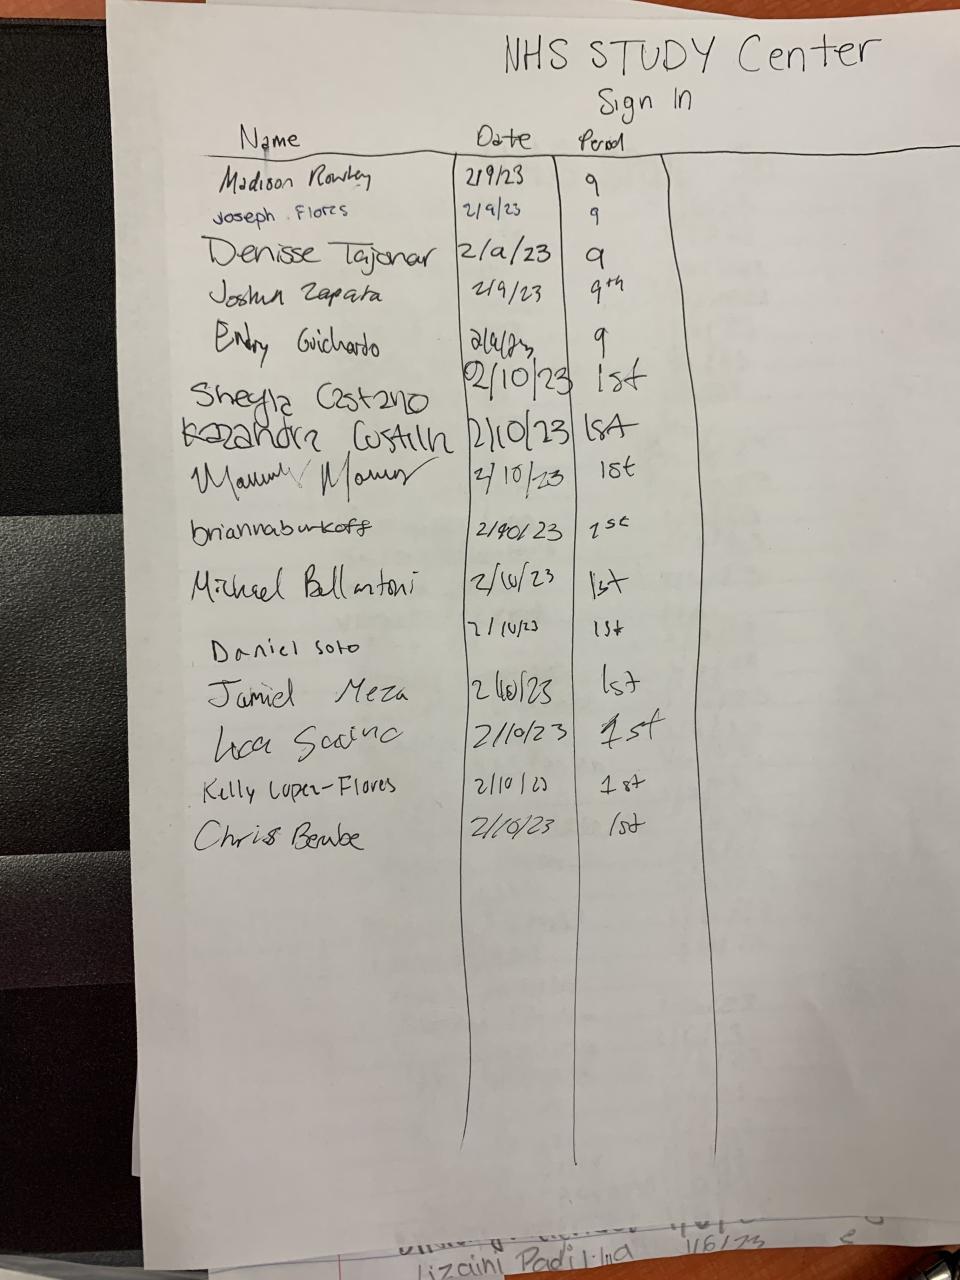 NHS STUDY Center
Sign In
Name Date Period
Madison Rowley 2/9/23 9
Joseph Flores 2/9/23 9
Denisse Tajonar 2/9/23 9
Joshua Zapata 2/9/23 9th
Endry Guichardo 2/9/23 9
Sheyla Castano 02/10/23 1st
Kazandra 2/10/23 1st
2/10/23 1st
brianna burkoff 2/10/23 1st
Michael Bellantoni 2/10/23 1st
Daniel Soto 2/10/23 1st
Jamiel Meza 2/10/23 1st
Luca 2/10/23 1st
Kelly Lopez-Flores 2/10/23 1st
Chris Berube 2/10/23 1st
Lizaini 1/6/23